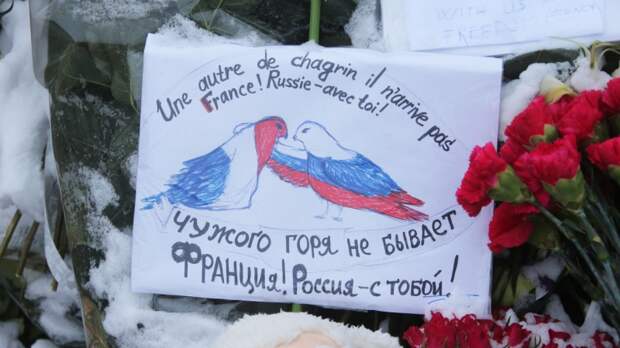 WITH US
FREE
Une autre de chagrin il n'arrive pas
France! Russie-avec toi!
ЧУЖОГО ГОРЯ НЕ БЫВАЕТ
ФРАНЦИЯ! РОССИЯ-С ТОБОЙ!